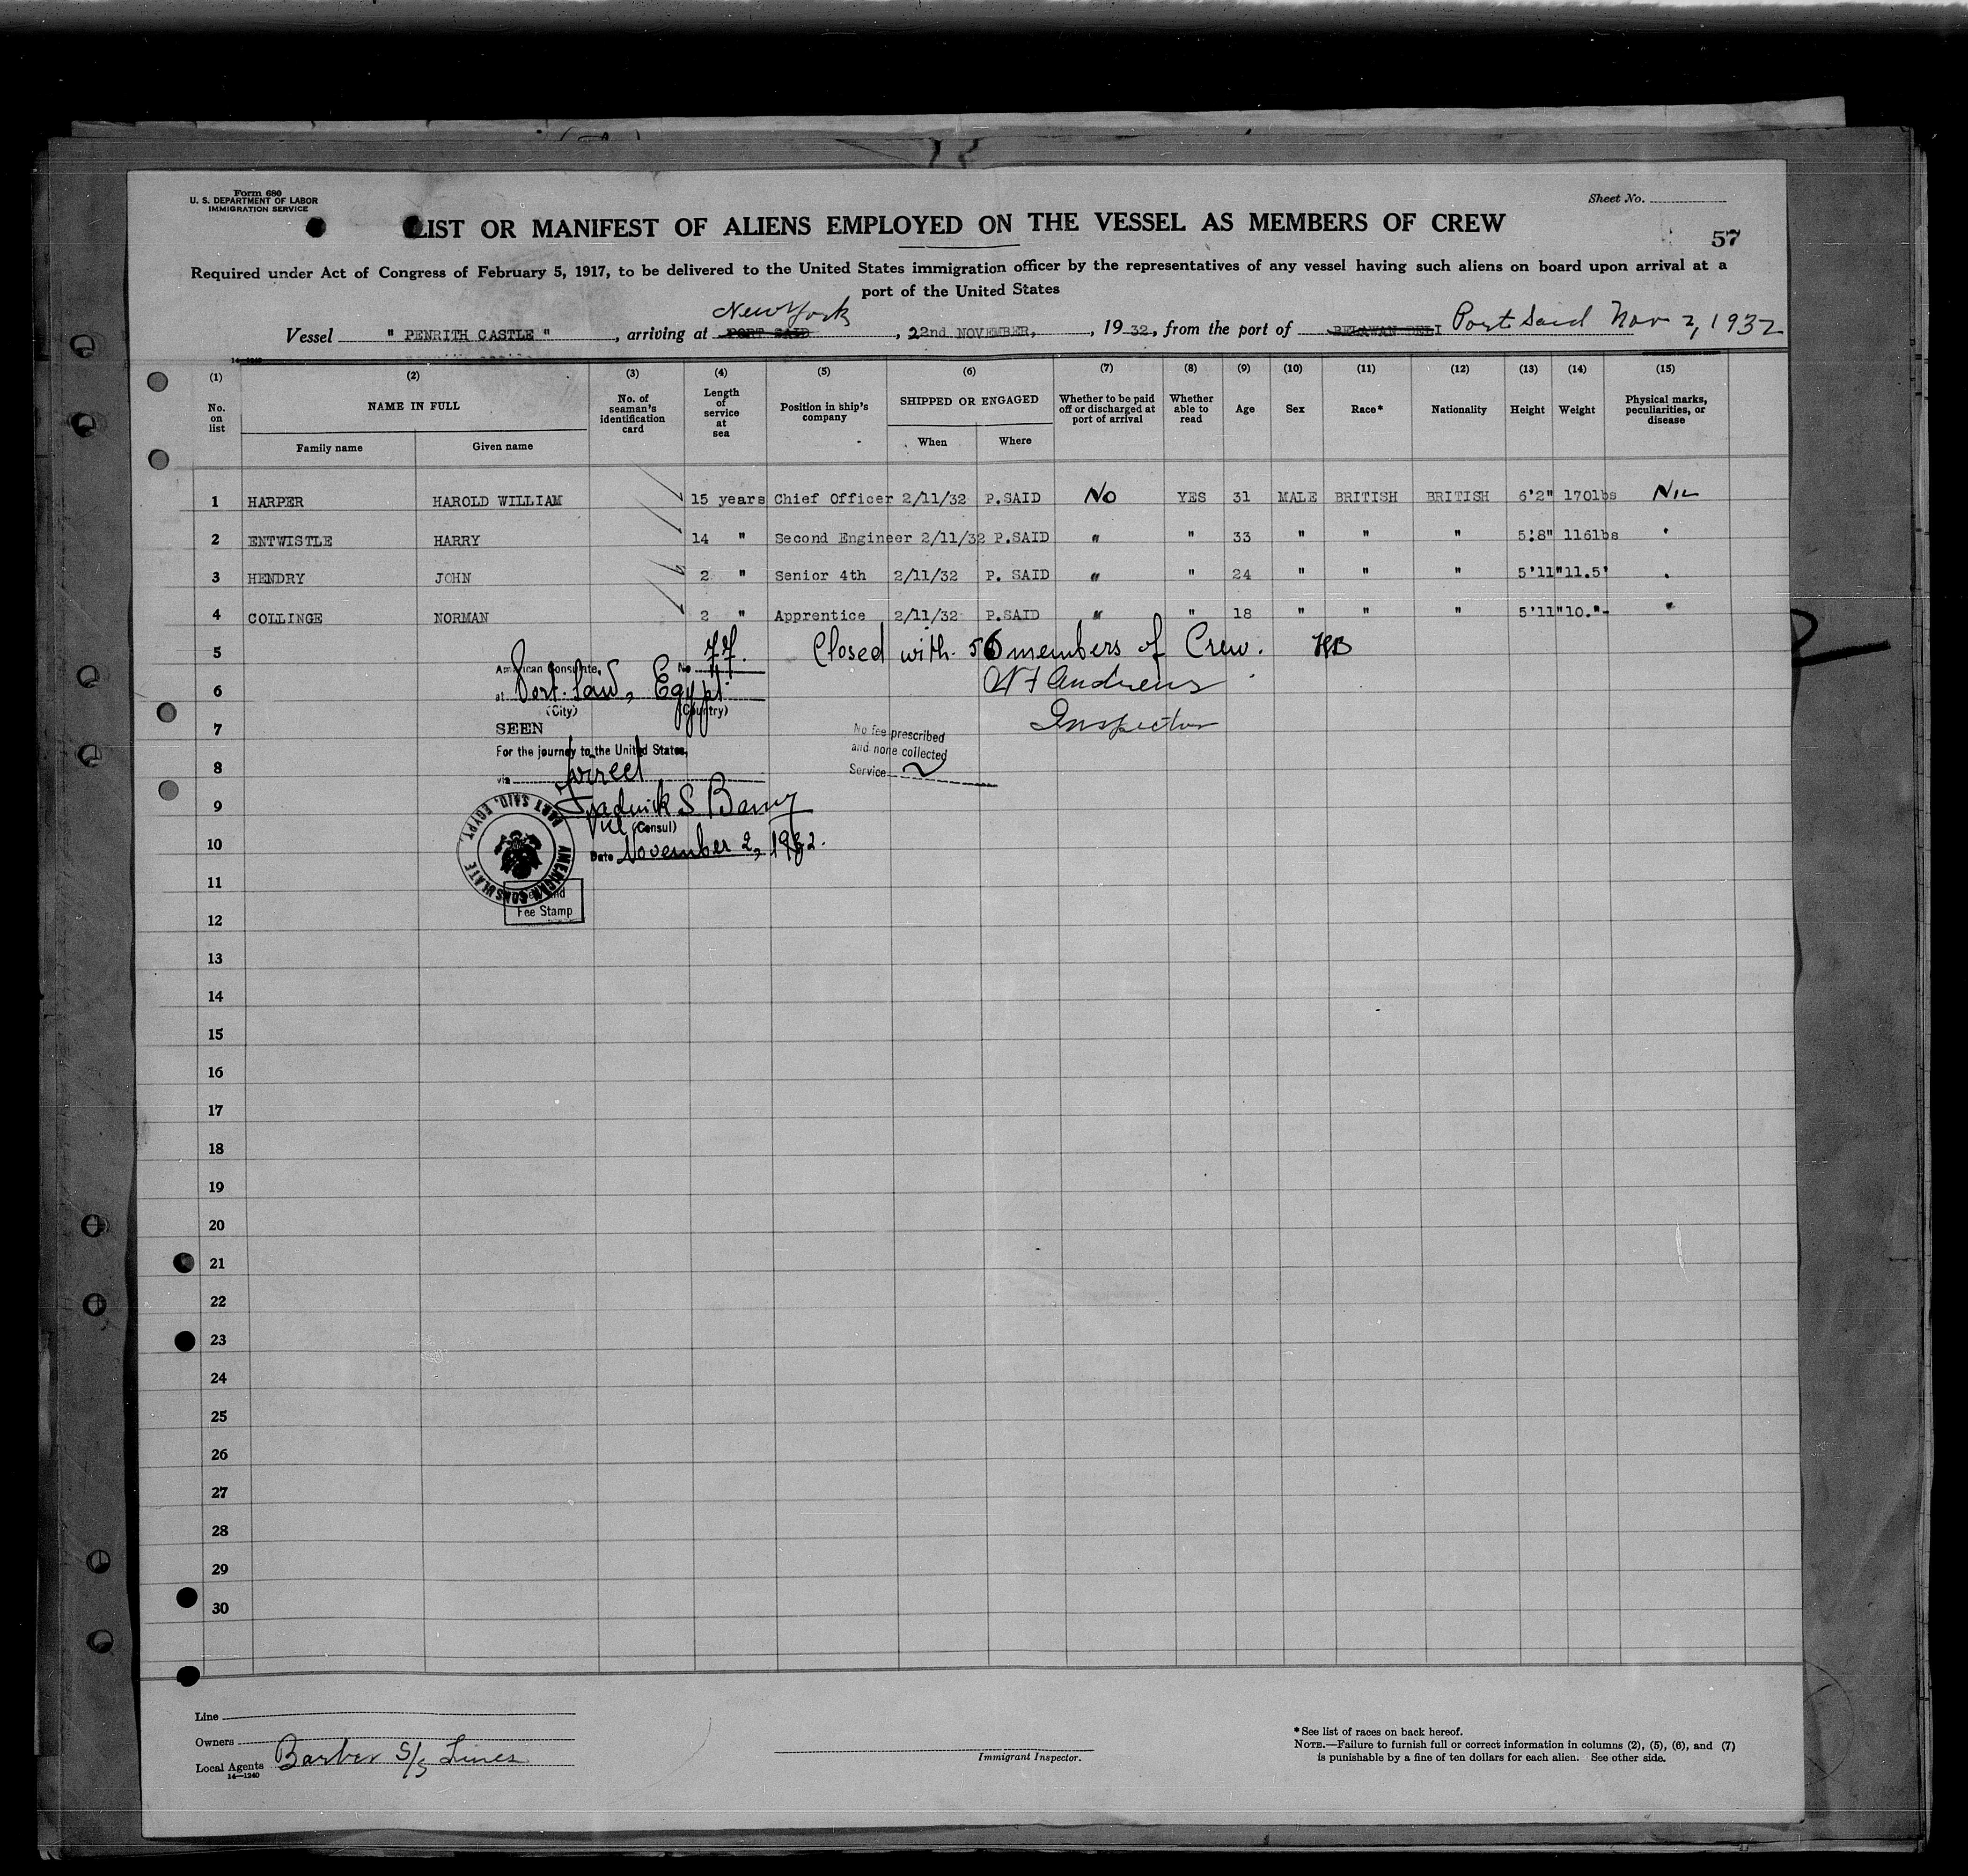 Form 680
U. S. DEPARTMENT OF LABOR
IMMIGRATION SERVICE
Sheet No.
LIST OR MANIFEST OF ALIENS EMPLOYED ON THE VESSEL AS MEMBERS OF CREW
57
Required under Act of Congress of February 5, 1917, to be delivered to the United States immigration officer by the representatives of any vessel having such aliens on board upon arrival at a
port of the United States
New York
Vessel " PENRITH CASTLE " , arriving at PORT SAID , 22nd NOVEMBER, , 1932, from the port of BELAWAN DELI Port Said Nov 2, 1932
14-1240
(1) (2) (3) (4) (5) (6) (7) (8) (9) (10) (11) (12) (13) (14) (15)
No. on list NAME IN FULL No. of seaman's identification card Length of service at sea Position in ship's company SHIPPED OR ENGAGED Whether to be paid off or discharged at port of arrival Whether able to read Age Sex Race* Nationality Height Weight Physical marks, peculiarities, or disease
Family name Given name When Where
1 HARPER HAROLD WILLIAM 15 years Chief Officer 2/11/32 P.SAID No YES 31 MALE BRITISH BRITISH 6'2" 170lbs NIL
2 ENTWISTLE HARRY 14 " Second Engineer 2/11/32 P.SAID " " 33 " " " 5'8" 116lbs "
3 HENDRY JOHN 2 " Senior 4th 2/11/32 P. SAID " " 24 " " " 5'11" 11.5' "
4 COLLINGE NORMAN 2 " Apprentice 2/11/32 P.SAID " " 18 " " " 5'11" 10."- "
5 Closed with 56 members of Crew.
American Consulate, No.
6 at Port Said, Egypt. N F Andrews
(City) (Country)
7 SEEN Inspector
No fee prescribed
For the journey to the United States, and none collected
8 via direct Service
9 Fradrick S. Barny
Vice (Consul)
10 Date November 2, 1932.
AMERICAN CONSULATE PORT SAID, EGYPT.
11
12 Fee Stamp
13
14
15
16
17
18
19
20
21
22
23
24
25
26
27
28
29
30
Line
Owners
Local Agents Barber S/S Lines
14-1240
Immigrant Inspector.
* See list of races on back hereof.
NOTE.—Failure to furnish full or correct information in columns (2), (5), (6), and (7)
is punishable by a fine of ten dollars for each alien. See other side.